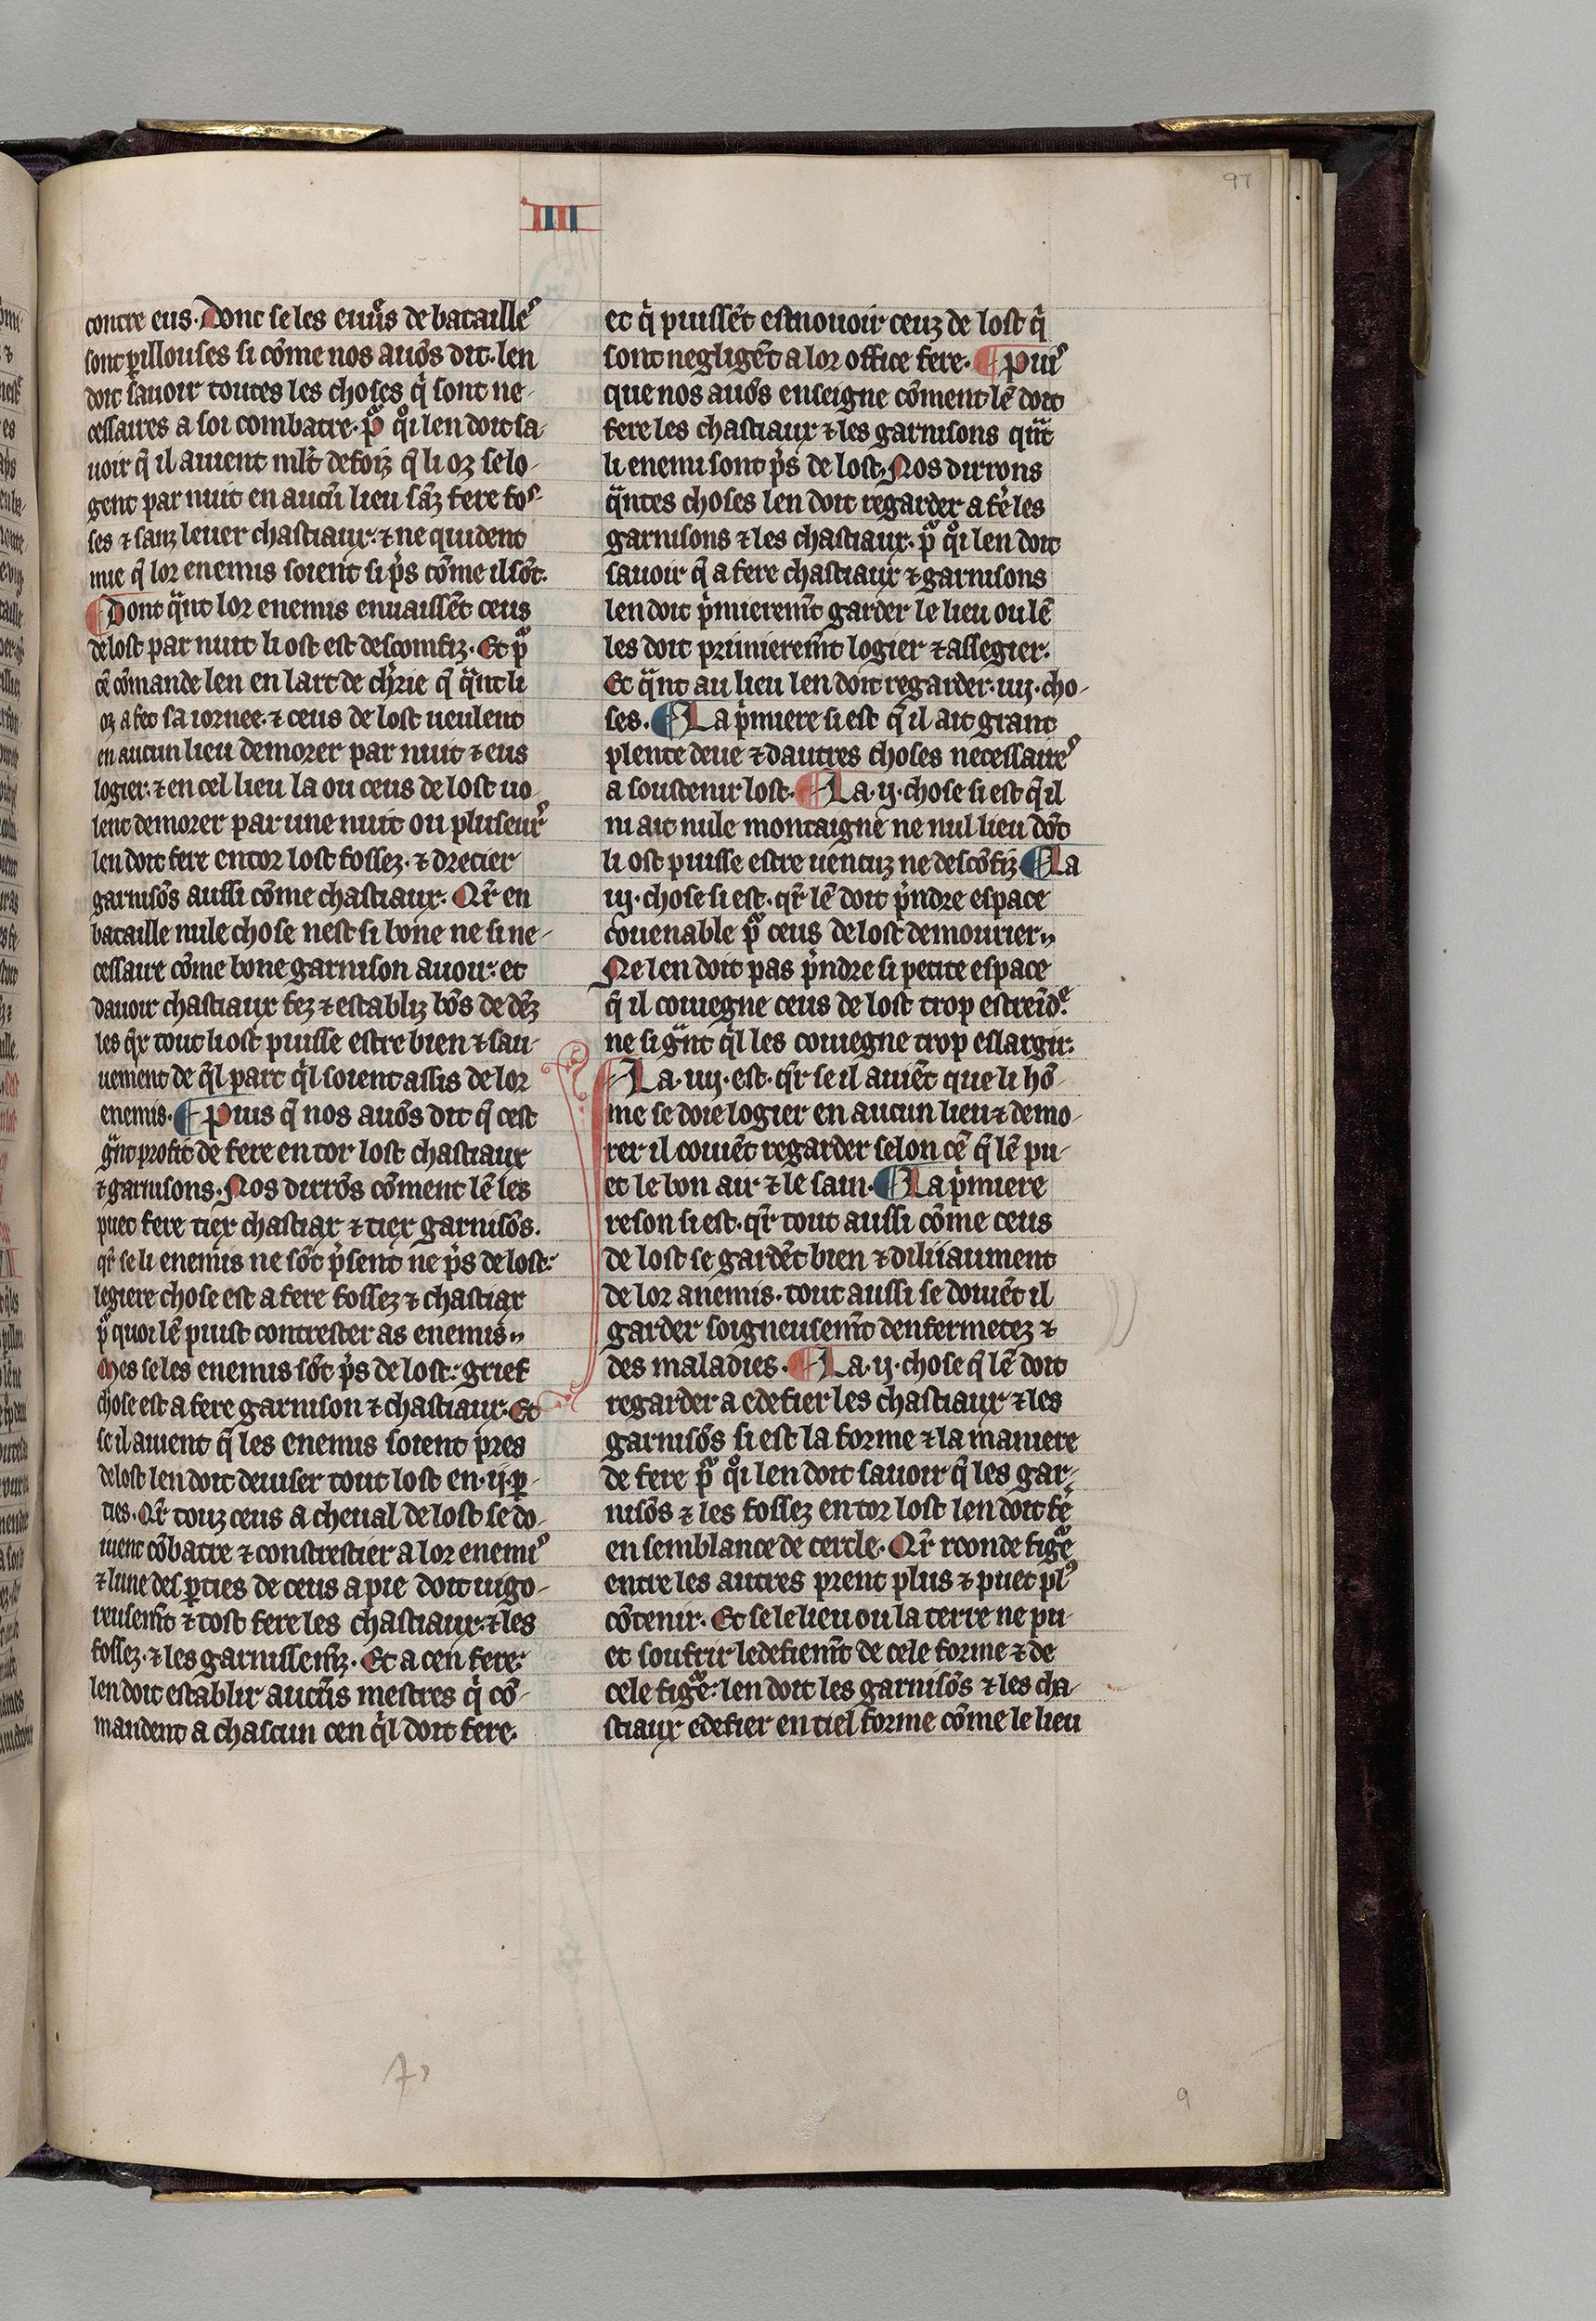 97
IIII
contre eus. Donc se les euures de bataille᷒
sont ꝑillouses si cōme nos auōs dit. len
doit sauoir toutes les choses q̇ sont ne-
cessaires a soi combatre. pͣ qͦi len doit sa-
uoir q̄ il auient ml̄t de foiz q̄ li oz se lo-
gent par nuit en aucū lieu sāz fere fos-
ses ⁊ sanz leuer chastiaux. ⁊ ne quident
mie q̄ lor enemis soient si p̍s cōme il sōt.
¶ Dont qͣnt lor enemis enuaissēt ceus
de lost par nuit li ost est descomfiz. Et pͣ
cē cōmande len en lart de ch̍rie q̄ qͣnt li
oz a fet sa iornee. ⁊ ceus de lost ueulent
en aucun lieu demorer par nuit ⁊ eus
logier. ⁊ en cel lieu la ou ceus de lost uo-
lent demorer par une nuit ou pluseur᷒
len doit fere entor lost fossez. ⁊ drecier
garnisōs aussi cōme chastiaux. Qr̄ en
bataille nule chose nest si bone ne si ne-
cessaire cōme bone garnison auoir. et
dauoir chastiaux fez ⁊ establiz bōs dedēz
les q̄x tout li ost puisse estre bien ⁊ sau-
uement de q̄l part q̍l soient assis de lor
enemis. ¶ Puis q̄ nos auōs dit q̄ cest
gͣnt profit de fere entor lost chastiaux
⁊ garnisons. Nos dirrōs cōment lē les
puet fere tiex chastiax ⁊ tiex garnisōs.
qr̄ se li enemis ne sōt p̍sent ne p̍s de lost.
legiere chose est a fere fossez ⁊ chastiax
pͣ quoi lē puist contrester as enemis.
Mes se les enemis sōt p̍s de lost. grief
chose est a fere garnison ⁊ chastiaux. Et
se il auient q̄ les enemis soient pres
de lost len doit deuiser tout lost en .ij. ꝑ-
ties. Qr̄ touz ceus a cheual de lost se do-
iuent cōbatre ⁊ constrestier a lor enemi᷒
⁊ lune des ꝑties de ceus a pie doit uigo-
reusemt̄ ⁊ tost fere les chastiaux. ⁊ les
fossez. ⁊ les garnissemz̄. Et a cen fere.
len doit establir aucūs mestres q̇ cō-
mandent a chascun cen q̍l doit fere.
et q̇ puissēt esmouoir ceuz de lost q̇
sont negligēt a lor office fere. ¶ Pui᷒
que nos auōs enseigne cōment lē doit
fere les chastiaux ⁊ les garnisons qͣnt
li enemi sont p̍s de lost. Nos dirrons
qͣntes choses len doit regarder a fe̍ les
garnisons ⁊ les chastiaux. pͣ qͦi len doit
sauoir q̄ a fere chastiaux ⁊ garnisons
len doit p̍mieremt̄ garder le lieu ou lē
les doit primieremt̄ logier ⁊ assegier.
Et qͣnt au lieu len doit regarder .iiij. cho-
ses. ¶ La p̍miere si est q̄ il ait grant
plente deue ⁊ dautres choses necessaire᷒
a soustenir lost. ¶ La .ij. chose si est q̄ il
ni ait nule montaigne ne nul lieu dōt
li ost puisse estre uencuz ne descōfiz ¶ La
iij. chose si est. qr̄ lē doit p̍ndre espace
couenable pͣ ceus de lost demourier.
Ne len doit pas p̍ndre si petite espace
q̄ il couiegne ceus de lost trop estreīdͤ.
ne si gͣnt q̍l les couiegne trop eslargir.
¶ La .iiij. est. qr̄ se il auiēt que li hō-
me se doie logier en aucun lieu ⁊ demo-
rer il couiēt regarder selon cē q̄ lē pu-
et le bon air ⁊ le sain. ¶ La p̍miere
reson si est. qr̄ tout aussi cōme ceus
de lost se gardēt bien ⁊ diliiaument
de lor anemis. tout aussi se doiuēt il
garder soigneusemt̄ denfermetez ⁊
des maladies. ¶ La .ij. chose q̄ lē doit
regarder a edefier les chastiaux ⁊ les
garnisōs si est la forme ⁊ la maniere
de fere pͣ qͦi len doit sauoir q̄ les gar-
nisōs ⁊ les fossez entor lost len doit fe̍
en semblance de cercle. Qr̄ roonde figͣe
entre les autres prent plus ⁊ puet pl᷒
cōtenir. Et se le lieu ou la terre ne pu-
et soufrir ledefiemt̄ de cele forme ⁊ de
cele figͣe. len doit les garnisōs ⁊ les cha-
stiaux edefier en tiel forme cōme le lieu
9